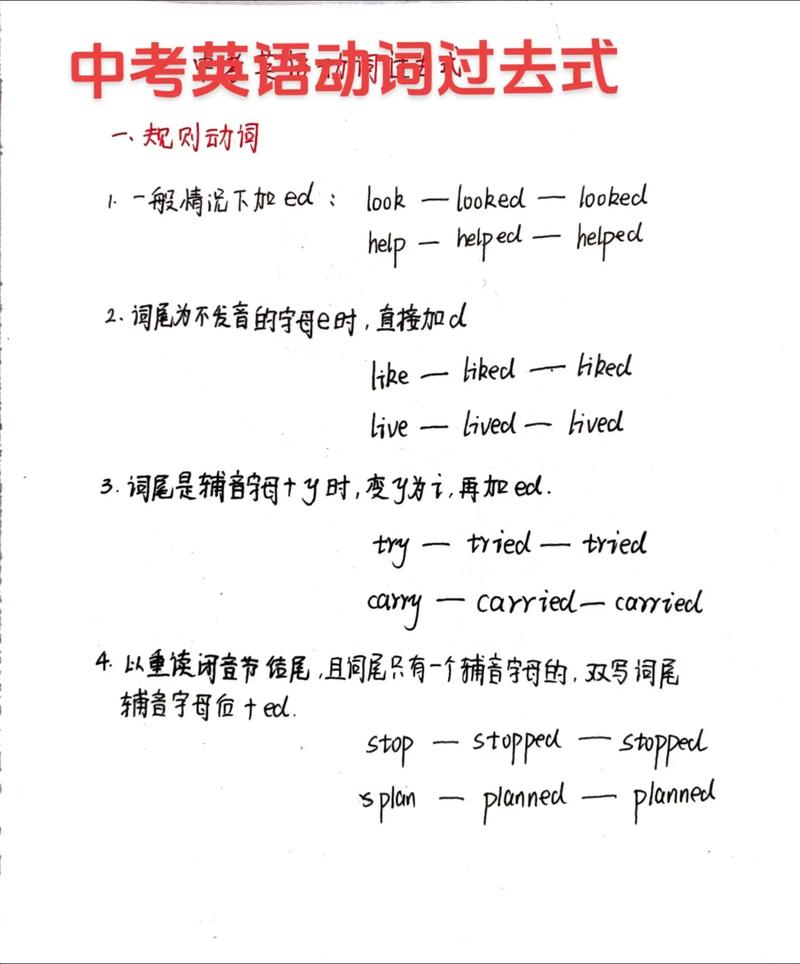 中考英语动词过去式
一、规则动词
1. 一般情况下加ed： look — looked — looked
help — helped — helped
2. 词尾为不发音的字母e时，直接加d
like — liked — liked
live — lived — lived
3. 词尾是辅音字母+y时，变y为i，再加ed.
try — tried — tried
carry — carried — carried
4. 以重读闭音节结尾，且词尾只有一个辅音字母的，双写词尾
辅音字母后+ed.
stop — stopped — stopped
splan — planned — planned